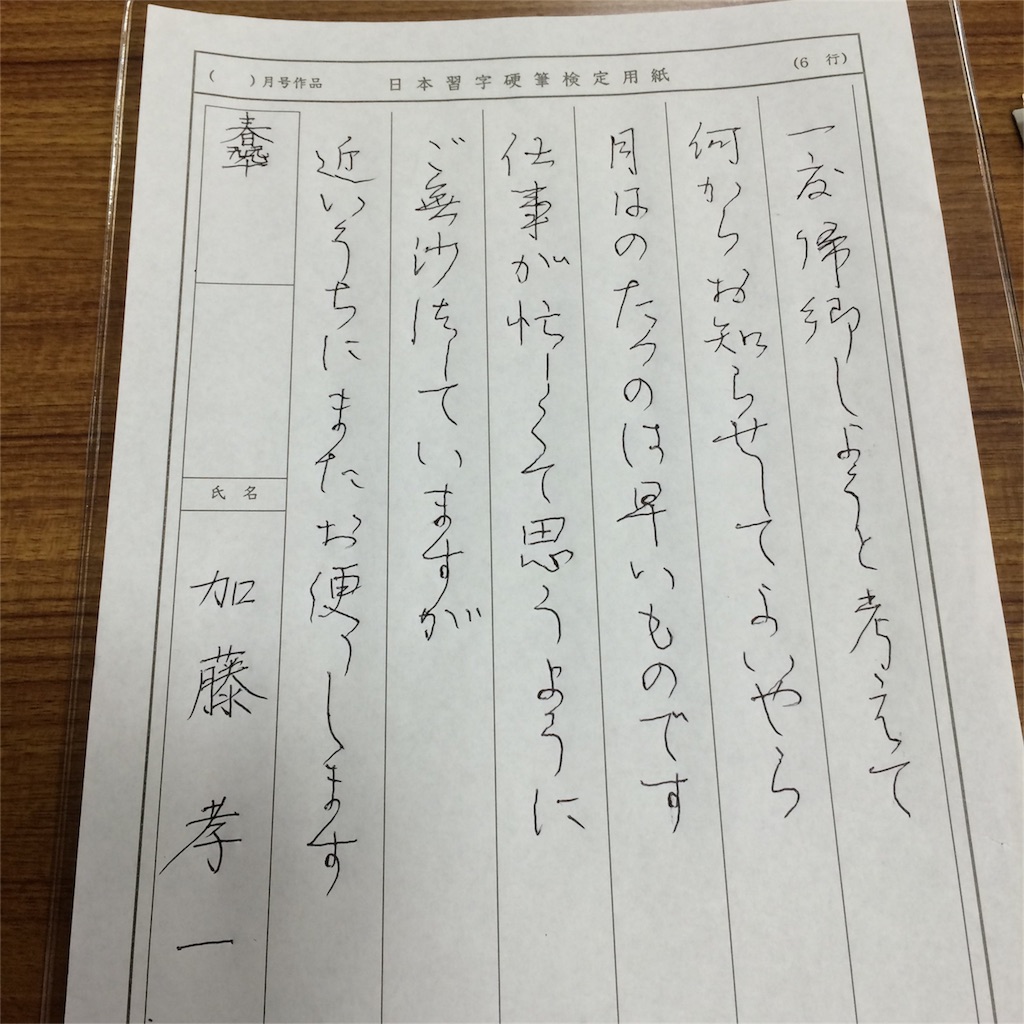 ( )月号作品 日本習字硬筆検定用紙 (6 行)
一度帰郷しようと考えて
何からお知らせしてよいやら
月日のたつのは早いものです
仕事が忙しくて思うように
ご無沙汰していますが
近いうちにまたお便りします
春
氏名
加藤孝一